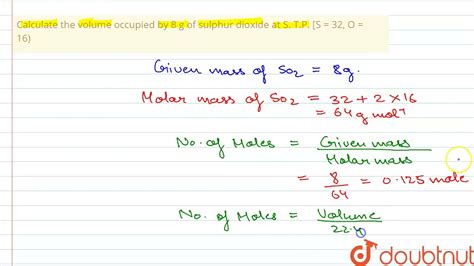 Calculate the volume occupied by 8 g of sulphur dioxide at S. T.P. [S = 32, O =
16)
Given mass of SO2 = 8g.
Molar mass of SO2 = 32 + 2 × 16
= 64 g mol⁻¹
No. of Moles = Given mass
Molar mass
= 8
64
= 0.125 mole
No. of Moles = Volume
22.4
doubtnut